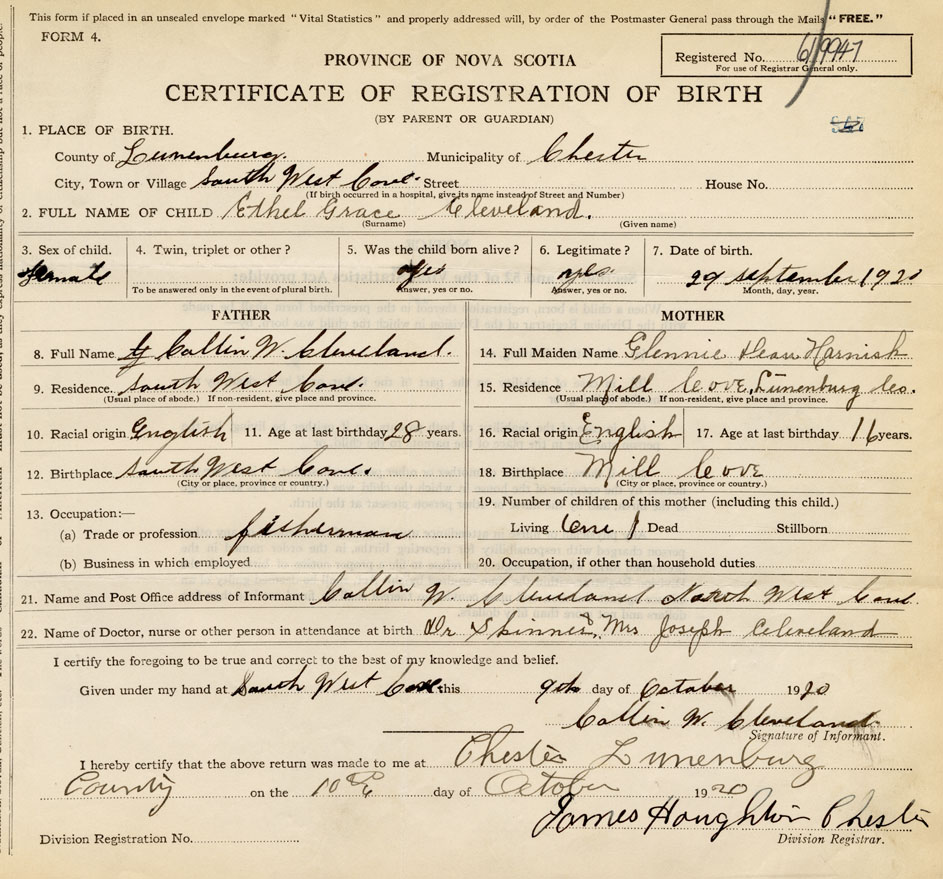 This form if placed in an unsealed envelope marked "Vital Statistics" and properly addressed will, by order of the Postmaster General pass through the Mails "FREE."
FORM 4.
Registered No. 619947
For use of Registrar General only.
PROVINCE OF NOVA SCOTIA
CERTIFICATE OF REGISTRATION OF BIRTH
(BY PARENT OR GUARDIAN)
1. PLACE OF BIRTH.
County of Lunenburg. Municipality of Chester
City, Town or Village South West Cove. Street House No.
(If birth occurred in a hospital, give its name instead of Street and Number)
2. FULL NAME OF CHILD Ethel Grace Cleveland.
(Surname) (Given name)
3. Sex of child. 4. Twin, triplet or other? 5. Was the child born alive? 6. Legitimate? 7. Date of birth.
female yes yes. 29 september 1920
To be answered only in the event of plural birth. Answer, yes or no. Answer, yes or no. Month, day, year.
FATHER
8. Full Name Collin W. Cleveland.
9. Residence. South West Cove.
(Usual place of abode.) If non-resident, give place and province.
10. Racial origin English 11. Age at last birthday 28 years.
12. Birthplace South West Cove.
(City or place, province or country.)
13. Occupation:—
(a) Trade or profession fisherman
(b) Business in which employed
MOTHER
14. Full Maiden Name Glennie Harnish
15. Residence Mill Cove, Lunenburg Co.
(Usual place of abode.) If non-resident, give place and province.
16. Racial origin English 17. Age at last birthday 16 years.
18. Birthplace Mill Cove
(City or place, province or country.)
19. Number of children of this mother (including this child.)
Living One 1 Dead Stillborn
20. Occupation, if other than household duties
21. Name and Post Office address of Informant Collin W. Cleveland North West Cove.
22. Name of Doctor, nurse or other person in attendance at birth Dr Skinner, Mrs Joseph Celveland
I certify the foregoing to be true and correct to the best of my knowledge and belief.
Given under my hand at South West Cove. this 9th day of October 1920
Collin W. Cleveland.
Signature of Informant.
I hereby certify that the above return was made to me at Chester Lunenburg
County on the 10th day of October 1920
James Houghton Chester
Division Registration No. Division Registrar.